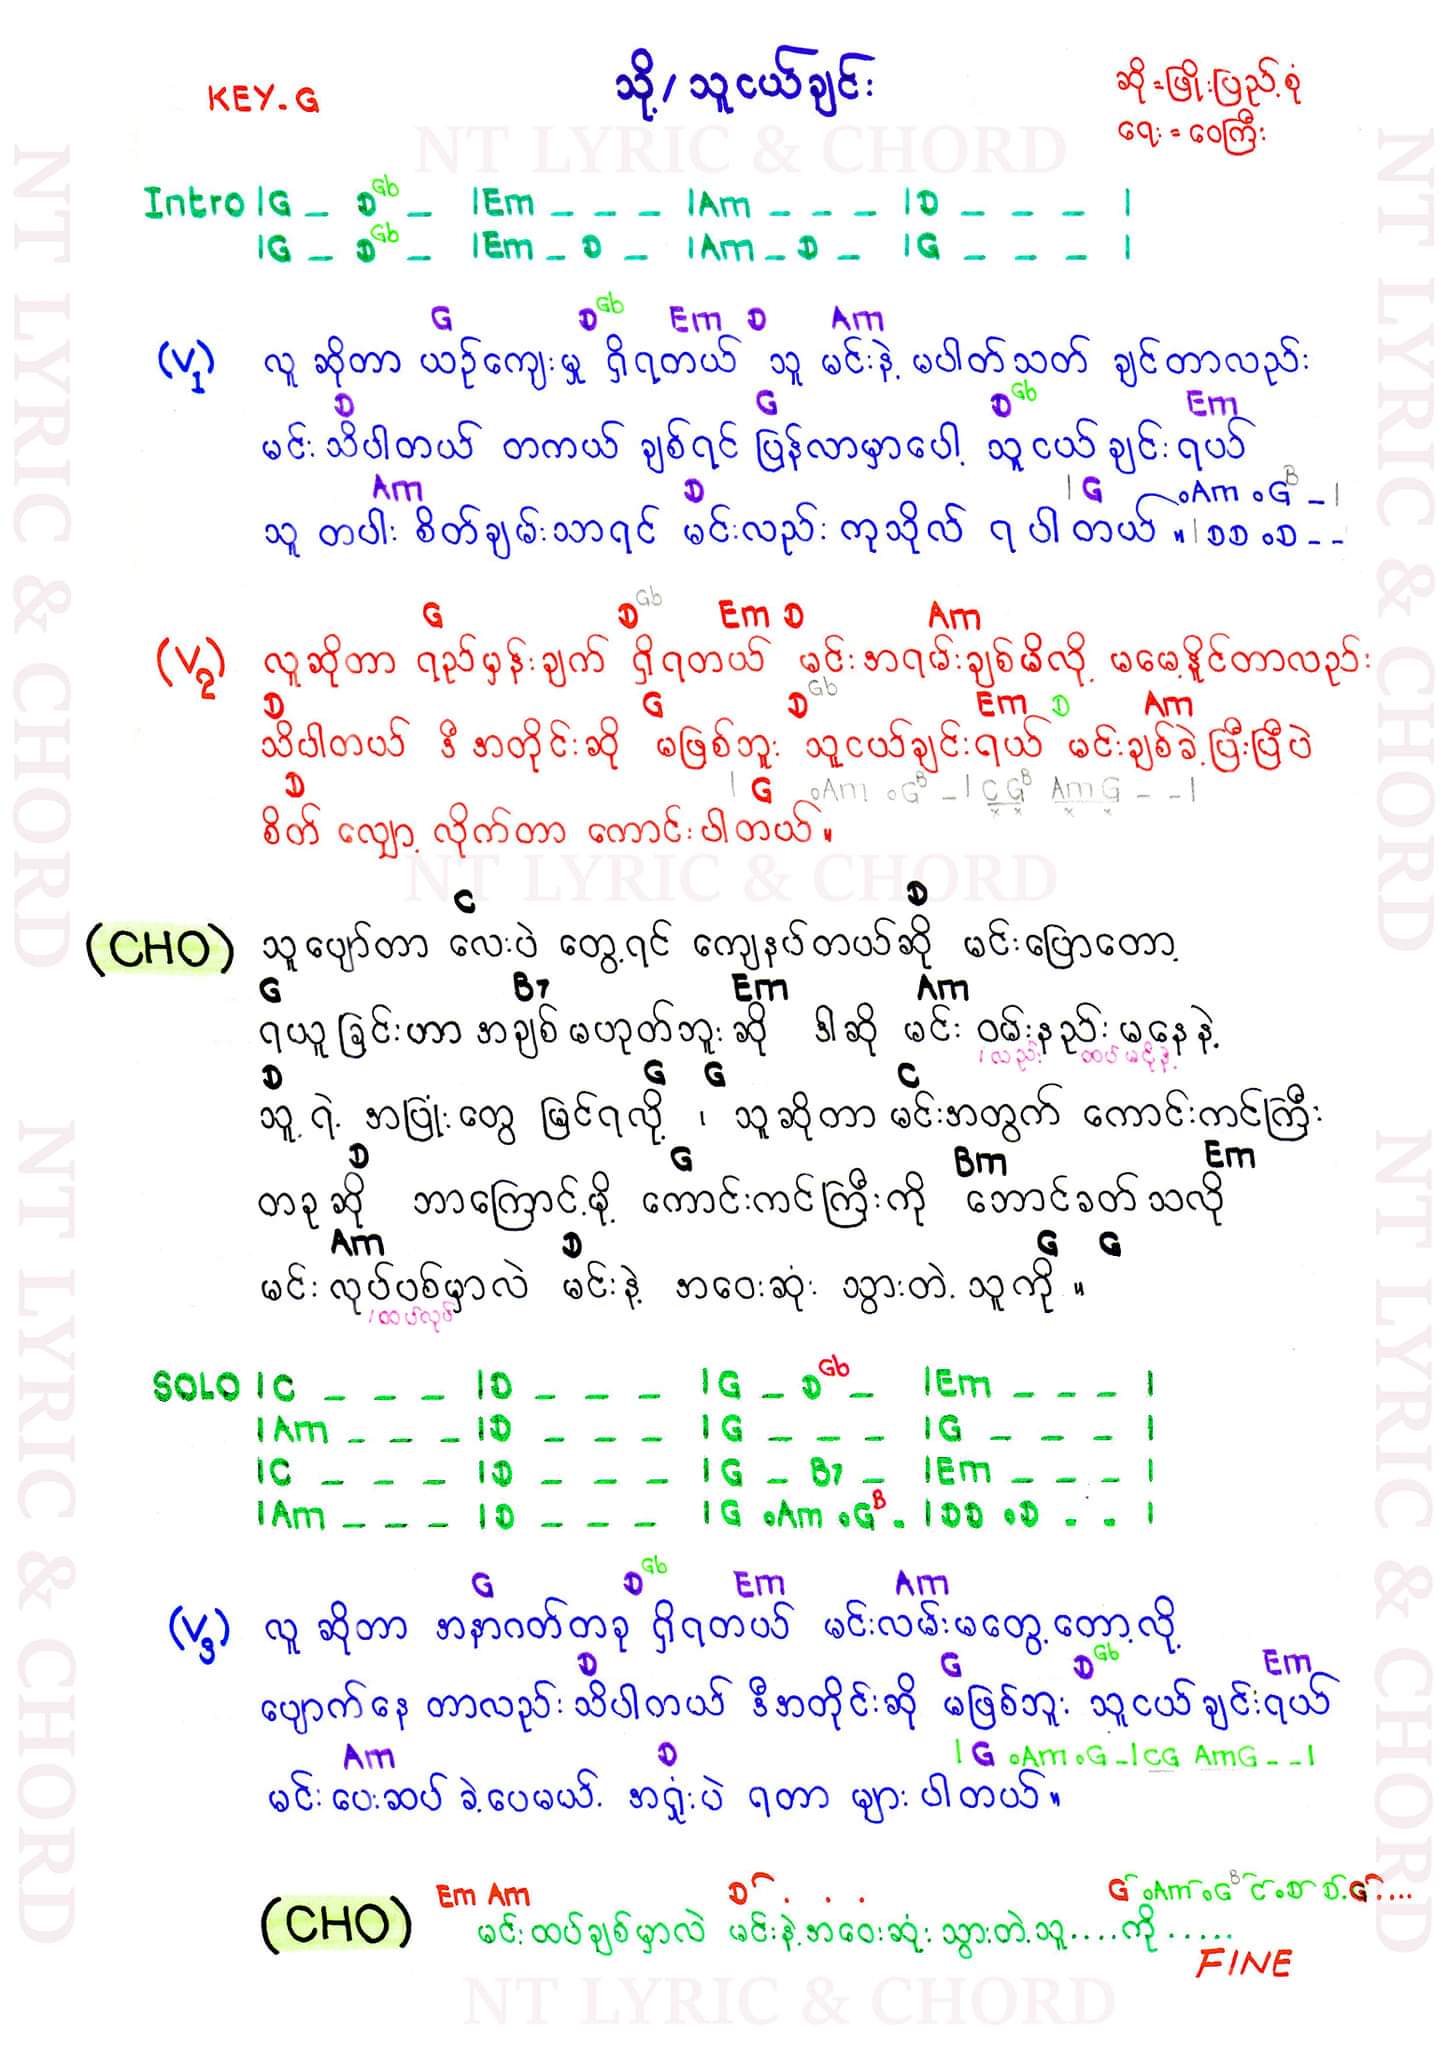 KEY-G
သို့/သူငယ်ချင်း
ဆို=ဖြိုးပြည့်စုံ
ရေး=ဝေကြီး
NT LYRIC & CHORD
Intro |G _ D Gb _ |Em _ _ _ |Am _ _ _ |D _ _ _ |
|G _ D Gb _ |Em _ D _ |Am _ D _ |G _ _ _ |
G D Gb Em D Am
(V1) လူ ဆိုတာ ယဉ်ကျေးမှု ရှိရတယ် သူ မင်းနဲ့ မပါတ်သတ် ချင်တာလည်း
D G D Gb Em
မင်း သိပါတယ် တကယ် ချစ်ရင် ပြန်လာမှာပေါ့ သူငယ်ချင်းရယ်
Am D |G .Am .G B _|
သူ တပါး စိတ်ချမ်းသာရင် မင်းလည်း ကုသိုလ် ရ ပါ တယ် ။ |DD .D _ _
G D Gb Em D Am
(V2) လူဆိုတာ ရည်မှန်းချက် ရှိရတယ် မင်းအရမ်းချစ်မိလို့ မမေ့နိုင်တာလည်း
D G D Gb Em D Am
သိပါတယ် ဒီအတိုင်းဆို မဖြစ်ဘူး သူငယ်ချင်းရယ် မင်းချစ်ခဲ့ပြီးပြီပဲ
D |G .Am .G B _|C G B Am G _ _|
စိတ် လျှော့ လိုက်တာ ကောင်းပါတယ်။
NT LYRIC & CHORD
C D
(CHO) သူပျော်တာ လေးပဲ တွေ့ရင် ကျေနပ်တယ်ဆို မင်းပြောတော့
G B7 Em Am
ရယူခြင်းဟာ အချစ်မဟုတ်ဘူးဆို ဒါဆို မင်း ဝမ်းနည်းမနေနဲ့
/လည်း ထပ်မငိုနဲ့
D G G C
သူ့ရဲ့ အပြုံးတွေ မြင်ရလို့ ၊ သူဆိုတာ မင်းအတွက် ကောင်းကင်ကြီး
D G Bm Em
တခုဆို ဘာကြောင့်မို့ ကောင်းကင်ကြီးကို ဘောင်ခတ်သလို
Am D G G
မင်းလုပ်ပစ်မှာလဲ မင်းနဲ့ အဝေးဆုံး သွားတဲ့သူကို ။
/ထပ်လုပ်
SOLO |C _ _ _ |D _ _ _ |G _ D Gb _ |Em _ _ _ |
|Am _ _ _ |D _ _ _ |G _ _ _ |G _ _ _ |
|C _ _ _ |D _ _ _ |G _ B7 _ |Em _ _ _ |
|Am _ _ _ |D _ _ _ |G .Am .G B _ |DD .D _ _ |
G D Gb Em Am
(V3) လူ ဆိုတာ အနာဂတ်တခု ရှိရတယ် မင်းလမ်းမတွေ့တော့လို့
D G D Gb Em
ပျောက်နေ တာလည်း သိပါတယ် ဒီအတိုင်းဆို မဖြစ်ဘူး သူငယ်ချင်းရယ်
Am D |G .Am .G _|CG AmG _ _|
မင်းပေးဆပ် ခဲ့ပေမယ့် အရှုံးပဲ ရတာ များ ပါတယ်။
Em Am D . . . G .Am .G B C .D D .G ....
(CHO) မင်းထပ်ချစ်မှာလဲ မင်းနဲ့အဝေးဆုံး သွားတဲ့သူ....ကို......
FINE
NT LYRIC & CHORD
NT LYRIC & CHORD
NT LYRIC & CHORD
NT LYRIC & CHORD
NT LYRIC & CHORD